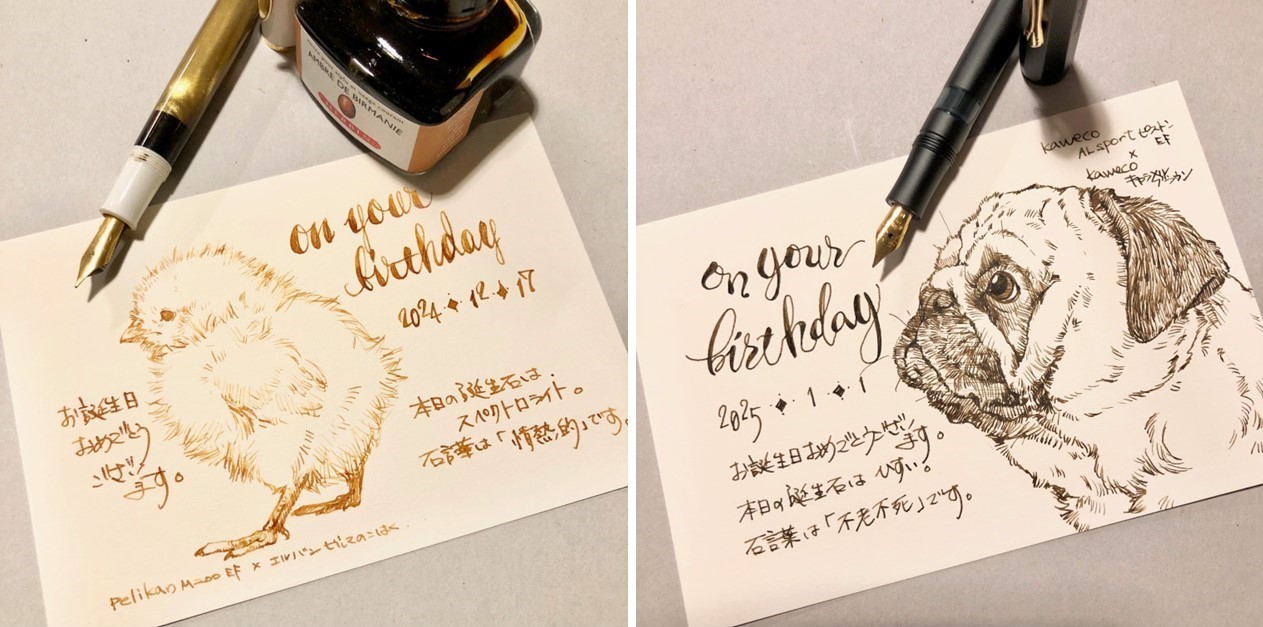 AMBRE DE BIRMANIE
HERBIN
on your
birthday
2024・12・17
お誕生日
おめでとう
ござい
ます。
本日の誕生石は、
スペクトロライト。
石言葉は「情熱的」です。
pelikan M200 EF × エルバン ビルマのこはく.
kaweco
AL sport ピストン
EF
×
kaweco
キャラメルブラウン
on your
birthday
2025・1・1
お誕生日おめでとうござい
ます。
本日の誕生石は ひすい。
石言葉は「不老不死」です。